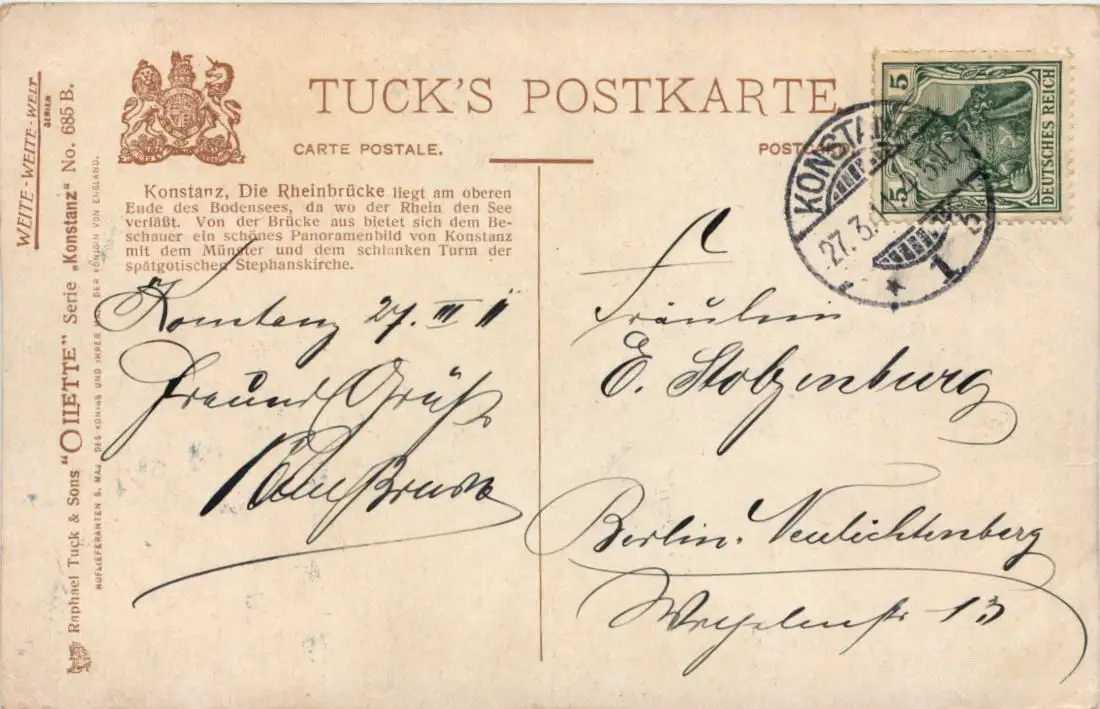 WEITE-WEITE-WELT
SERIEN
Raphael Tuck & Sons "OILETTE" Serie „Konstanz“ No. 685 B.
HOFLIEFERANTEN S. MAJ. DES KÖNIGS UND IHRER MAJ. DER KÖNIGIN VON ENGLAND.
TUCK'S POSTKARTE
CARTE POSTALE.
Konstanz, Die Rheinbrücke liegt am oberen
Ende des Bodensees, da wo der Rhein den See
verläßt. Von der Brücke aus bietet sich dem Be-
schauer ein schönes Panoramenbild von Konstanz
mit dem Münster und dem schlanken Turm der
spätgotischen Stephanskirche.
Konstanz 27. III 11
Freundl Grüße
5
5
DEUTSCHES REICH
KONSTANZ
27.3.11
* 1
Fräulein
E. Stolzenburg
Berlin-Neulichtenberg
13